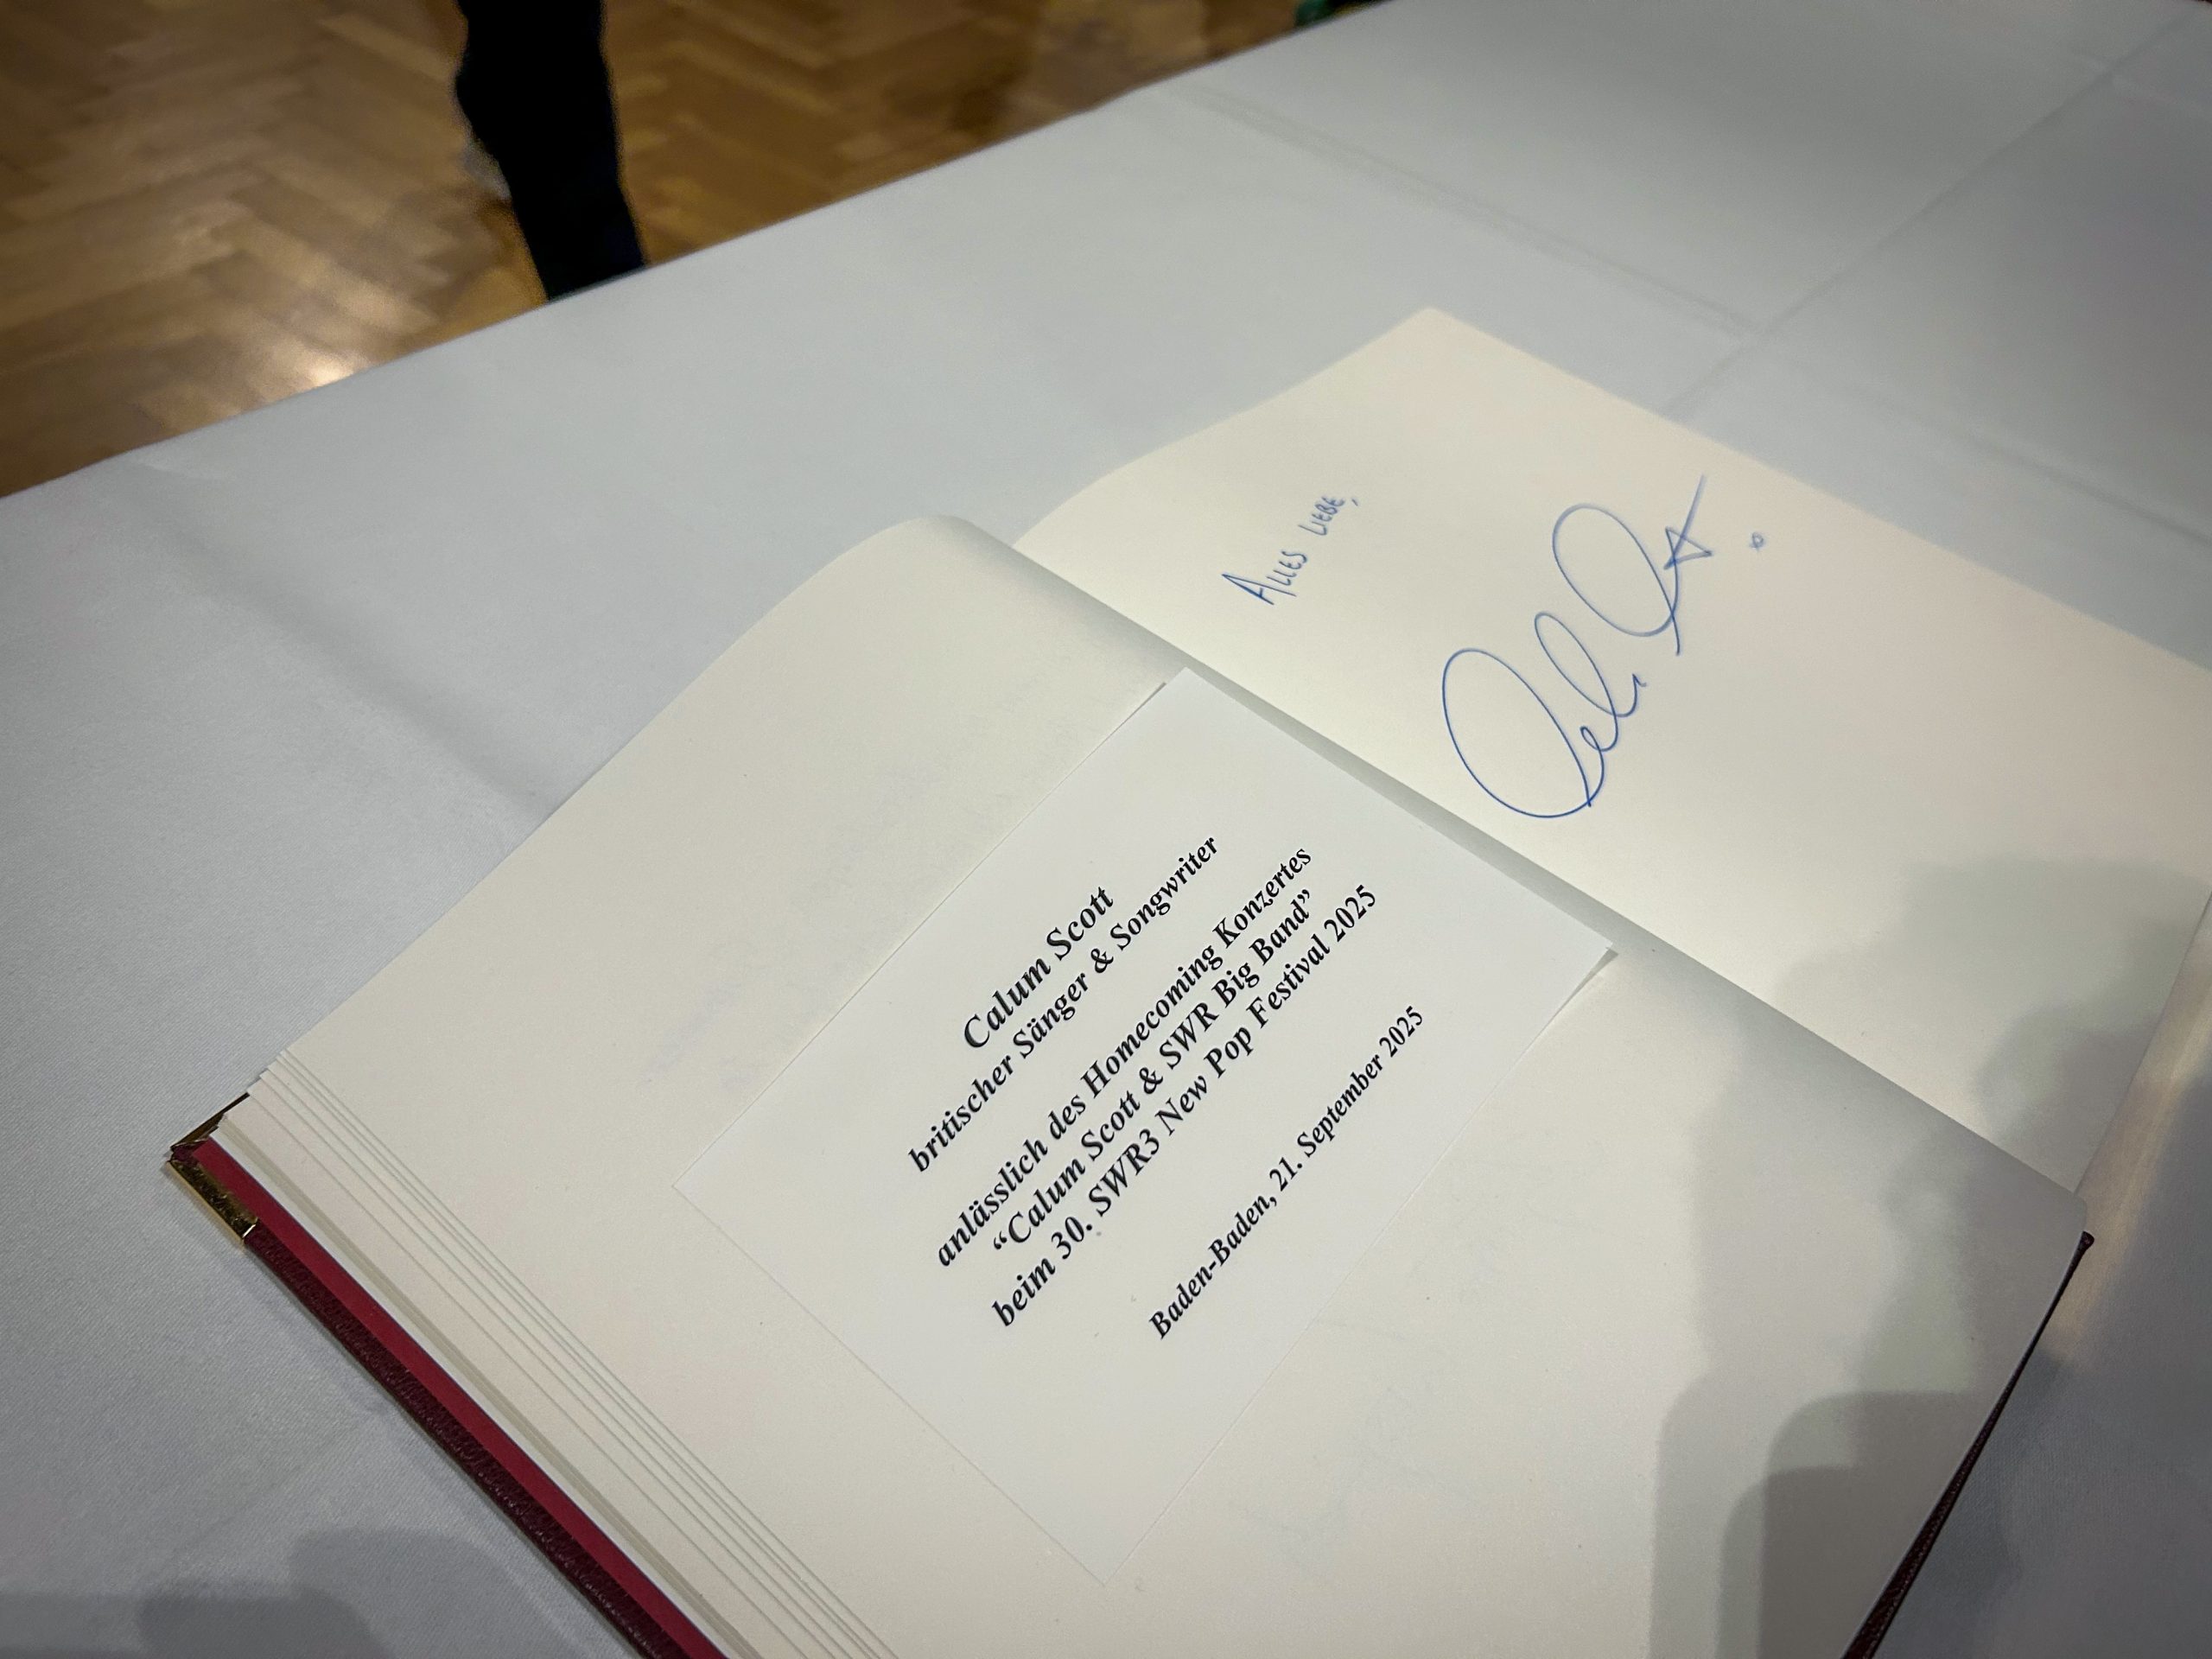 Calum Scott
britischer Sänger & Songwriter
anlässlich des Homecoming Konzertes
“Calum Scott & SWR Big Band”
beim 30. SWR3 New Pop Festival 2025
Baden-Baden, 21. September 2025
ALLES LIEBE,